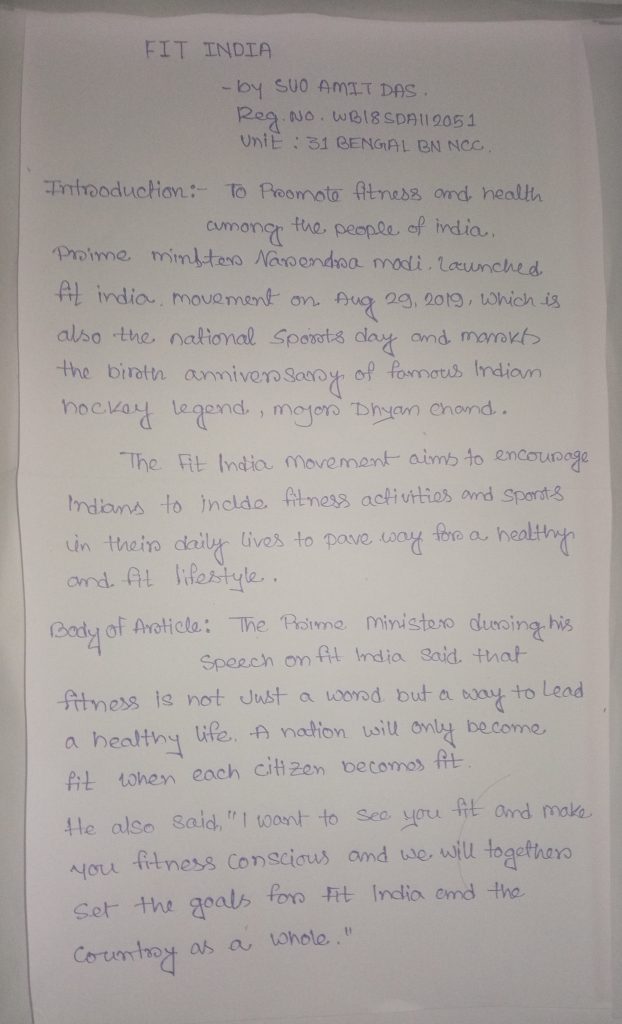 FIT INDIA
- by SUO AMIT DAS.
Reg. No. WB18SDA112051
Unit : 31 BENGAL BN NCC.
Introduction:- To Promote fitness and health
among the people of india.
Prime minister Narendra modi. Launched
fit india. movement on Aug 29, 2019, which is
also the national Sports day and marks
the birth anniversary of famous Indian
hockey legend, major Dhyan chand.
The Fit India Movement aims to encourage
Indians to inclde fitness activities and sports
in their daily lives to pave way for a healthy
and fit lifestyle.
Body of Article: The Prime Minister during his
Speech on fit India Said that
fitness is not Just a word but a way to Lead
a healthy life. A nation will only become
fit when each citizen becomes fit.
He also said, "I want to see you fit and make
you fitness conscious and we will together
Set the goals for Fit India and the
Country as a whole."